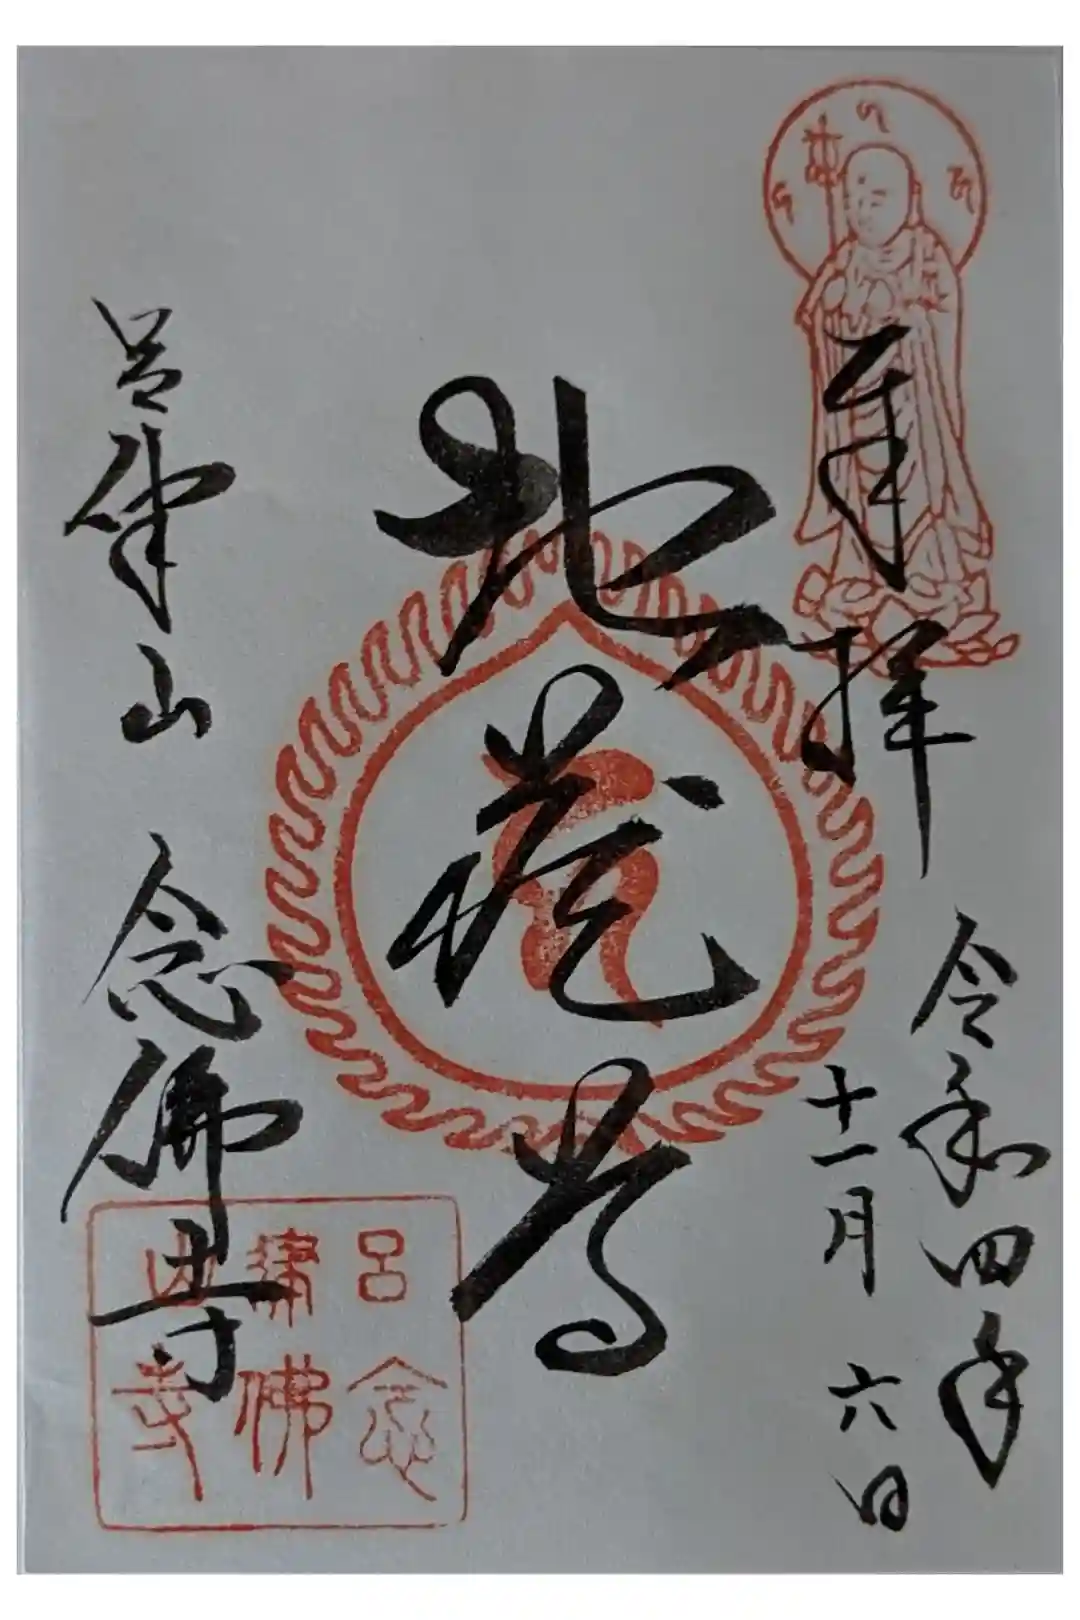 奉拝
令和四年
十一月六日
地蔵尊
呂山
念佛寺
呂山
念佛寺